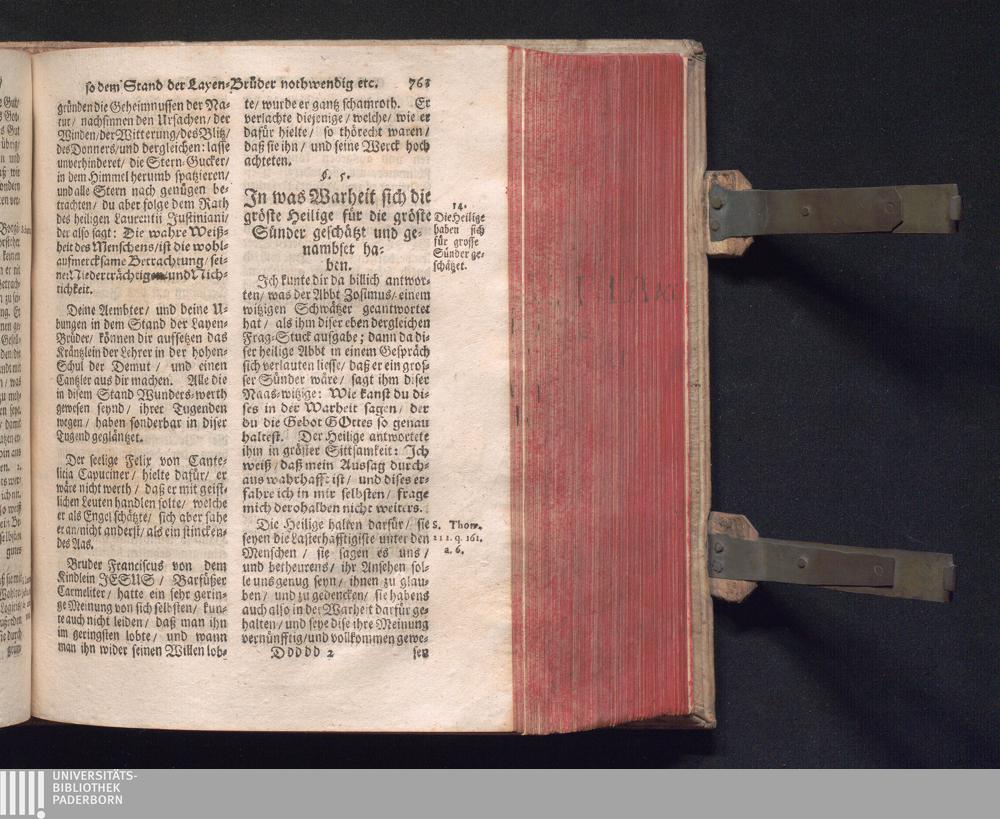 so dem Stand der Layen-Brüder nothwendig etc. 763
gründen die Geheimnussen der Na-
tur/ nachsinnen den Ursachen/ der
Winden/ der Witterung/ des Blitz/
des Donners/ und dergleichen: lasse
unverhinderet/ die Stern-Gucker/
in dem Himmel herumb spatzieren/
und alle Stern nach genügen be-
trachten/ du aber folge dem Rath
des heiligen Laurentii Justiniani/
der also sagt: Die wahre Weiß-
heit des Menschens/ ist die wohl-
aufmercksame Betrachtung/ sei-
ner Niederträchtigen und Nich-
tichkeit.
Deine Aembter/ und deine U-
bungen in dem Stand der Layen-
Brüder/ können dir aufsetzen das
Kräntzlein der Lehrer in der hohen-
Schul der Demut/ und einen
Cantzler aus dir machen. Alle die
in disem Stand Wunders-werth
gewesen seynd/ ihrer Tugenden
wegen/ haben sonderbar in diser
Tugend geglänzet.
Der seelige Felix von Cante-
licia Capuciner/ hielte dafür/ er
wäre nicht werth/ daß er mit geist-
lichen Leuten handlen solte/ welche
er als Engel schätzte/ sich aber sahe
er an/ nicht anderst/ als ein stincken-
des Aas.
Bruder Franciscus von dem
Kindlein JESUS/ Barfüßer
Carmeliter/ hatte ein sehr gerin-
ge Meinung von sich selbsten/ kun-
te auch nicht leiden/ daß man ihn
im geringsten lobte/ und wann
man ihn wider seinen Willen lob-
te/ wurde er gantz schamroth. Er
verlachte diejenige/ welche/ wie er
dafür hielte/ so thörecht waren/
daß sie ihn/ und seine Werck hoch
achteten.
§. 5.
In was Warheit sich die
gröste Heilige für die gröste
Sünder geschätzt und ge-
nambset ha-
ben.
14.
Die Heilige
haben sich
für grosse
Sünder ge-
schätzet.
Ich kunte dir da billich antwor-
ten/ was der Abbt Zosimus/ einem
witzigen Schwätzer geantwortet
hat/ als ihm diser eben dergleichen
Frag-Stuck aufgabe; dann da di-
ser heilige Abbt in einem Gespräch
sich verlauten liesse/ daß er ein gros-
ser Sünder wäre/ sagt ihm diser
Naas-witzige: Wie kanst du di-
ses in der Warheit sagen/ der
du die Gebot GOttes so genau
haltest. Der Heilige antwortete
ihm in gröster Sittsamkeit: Ich
weiß/ daß mein Aussag durch-
aus wahrhafft ist/ und dises er-
fahre ich in mir selbsten/ frage
mich derohalben nicht weiters.
Die Heilige halten darfür/ sie
seyen die Lasterhafftigiste unter den
Menschen/ sie sagen es uns/
und betheurens/ ihr Ansehen sol-
le uns genug seyn/ ihnen zu glau-
ben/ und zu gedencken/ sie habens
auch also in der Warheit darfür ge-
halten/ und seye dise ihre Meinung
vernünfftig/ und vollkommen gewe-
S. Thom.
q. 161.
a. 6.
Ddddd 2 sen
UNIVERSITÄTS-
BIBLIOTHEK
PADERBORN